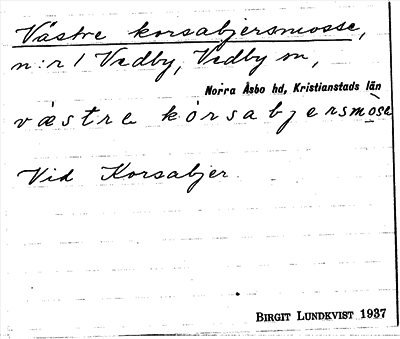 Västre korsabjersmosse,
n:r 1 Vedby, Vedby sn,
Norra Åsbo hd, Kristianstads län
væstre kòrsabjersmòse
Vid Korsabjer.
BIRGIT LUNDKVIST 1937